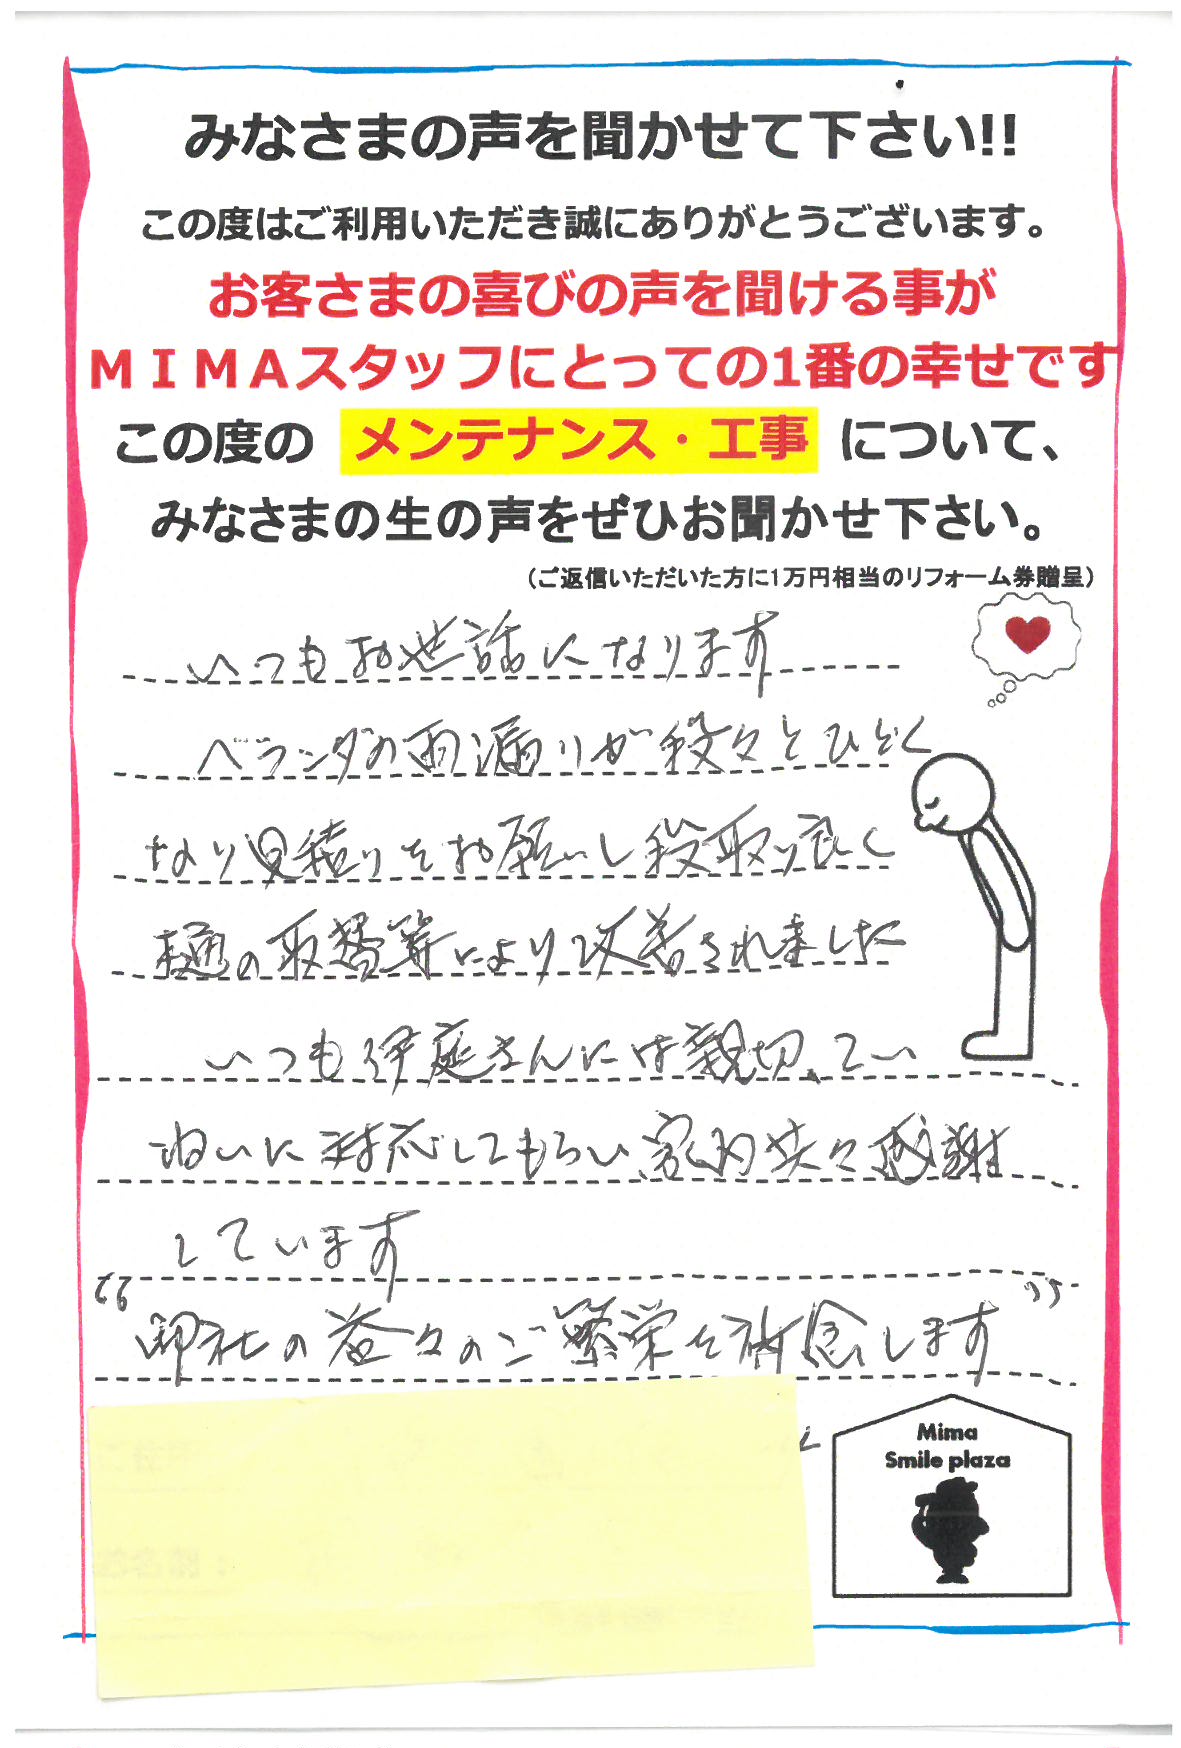 みなさまの声を聞かせて下さい!!
この度はご利用いただき誠にありがとうございます。
お客さまの喜びの声を聞ける事が
ＭＩＭＡスタッフにとっての1番の幸せです
この度の メンテナンス・工事 について、
みなさまの生の声をぜひお聞かせ下さい。
（ご返信いただいた方に1万円相当のリフォーム券贈呈）
いつもお世話になります
ベランダの雨漏りが段々とひどく
なり見積りをお願いし段取り良く
樋の取替等により改善されました
いつも伊庭さんには親切、てい
ねいに対応してもらい、家内共々感謝
しています
“御社の益々のご繁栄を祈念します”
Mima
Smile plaza